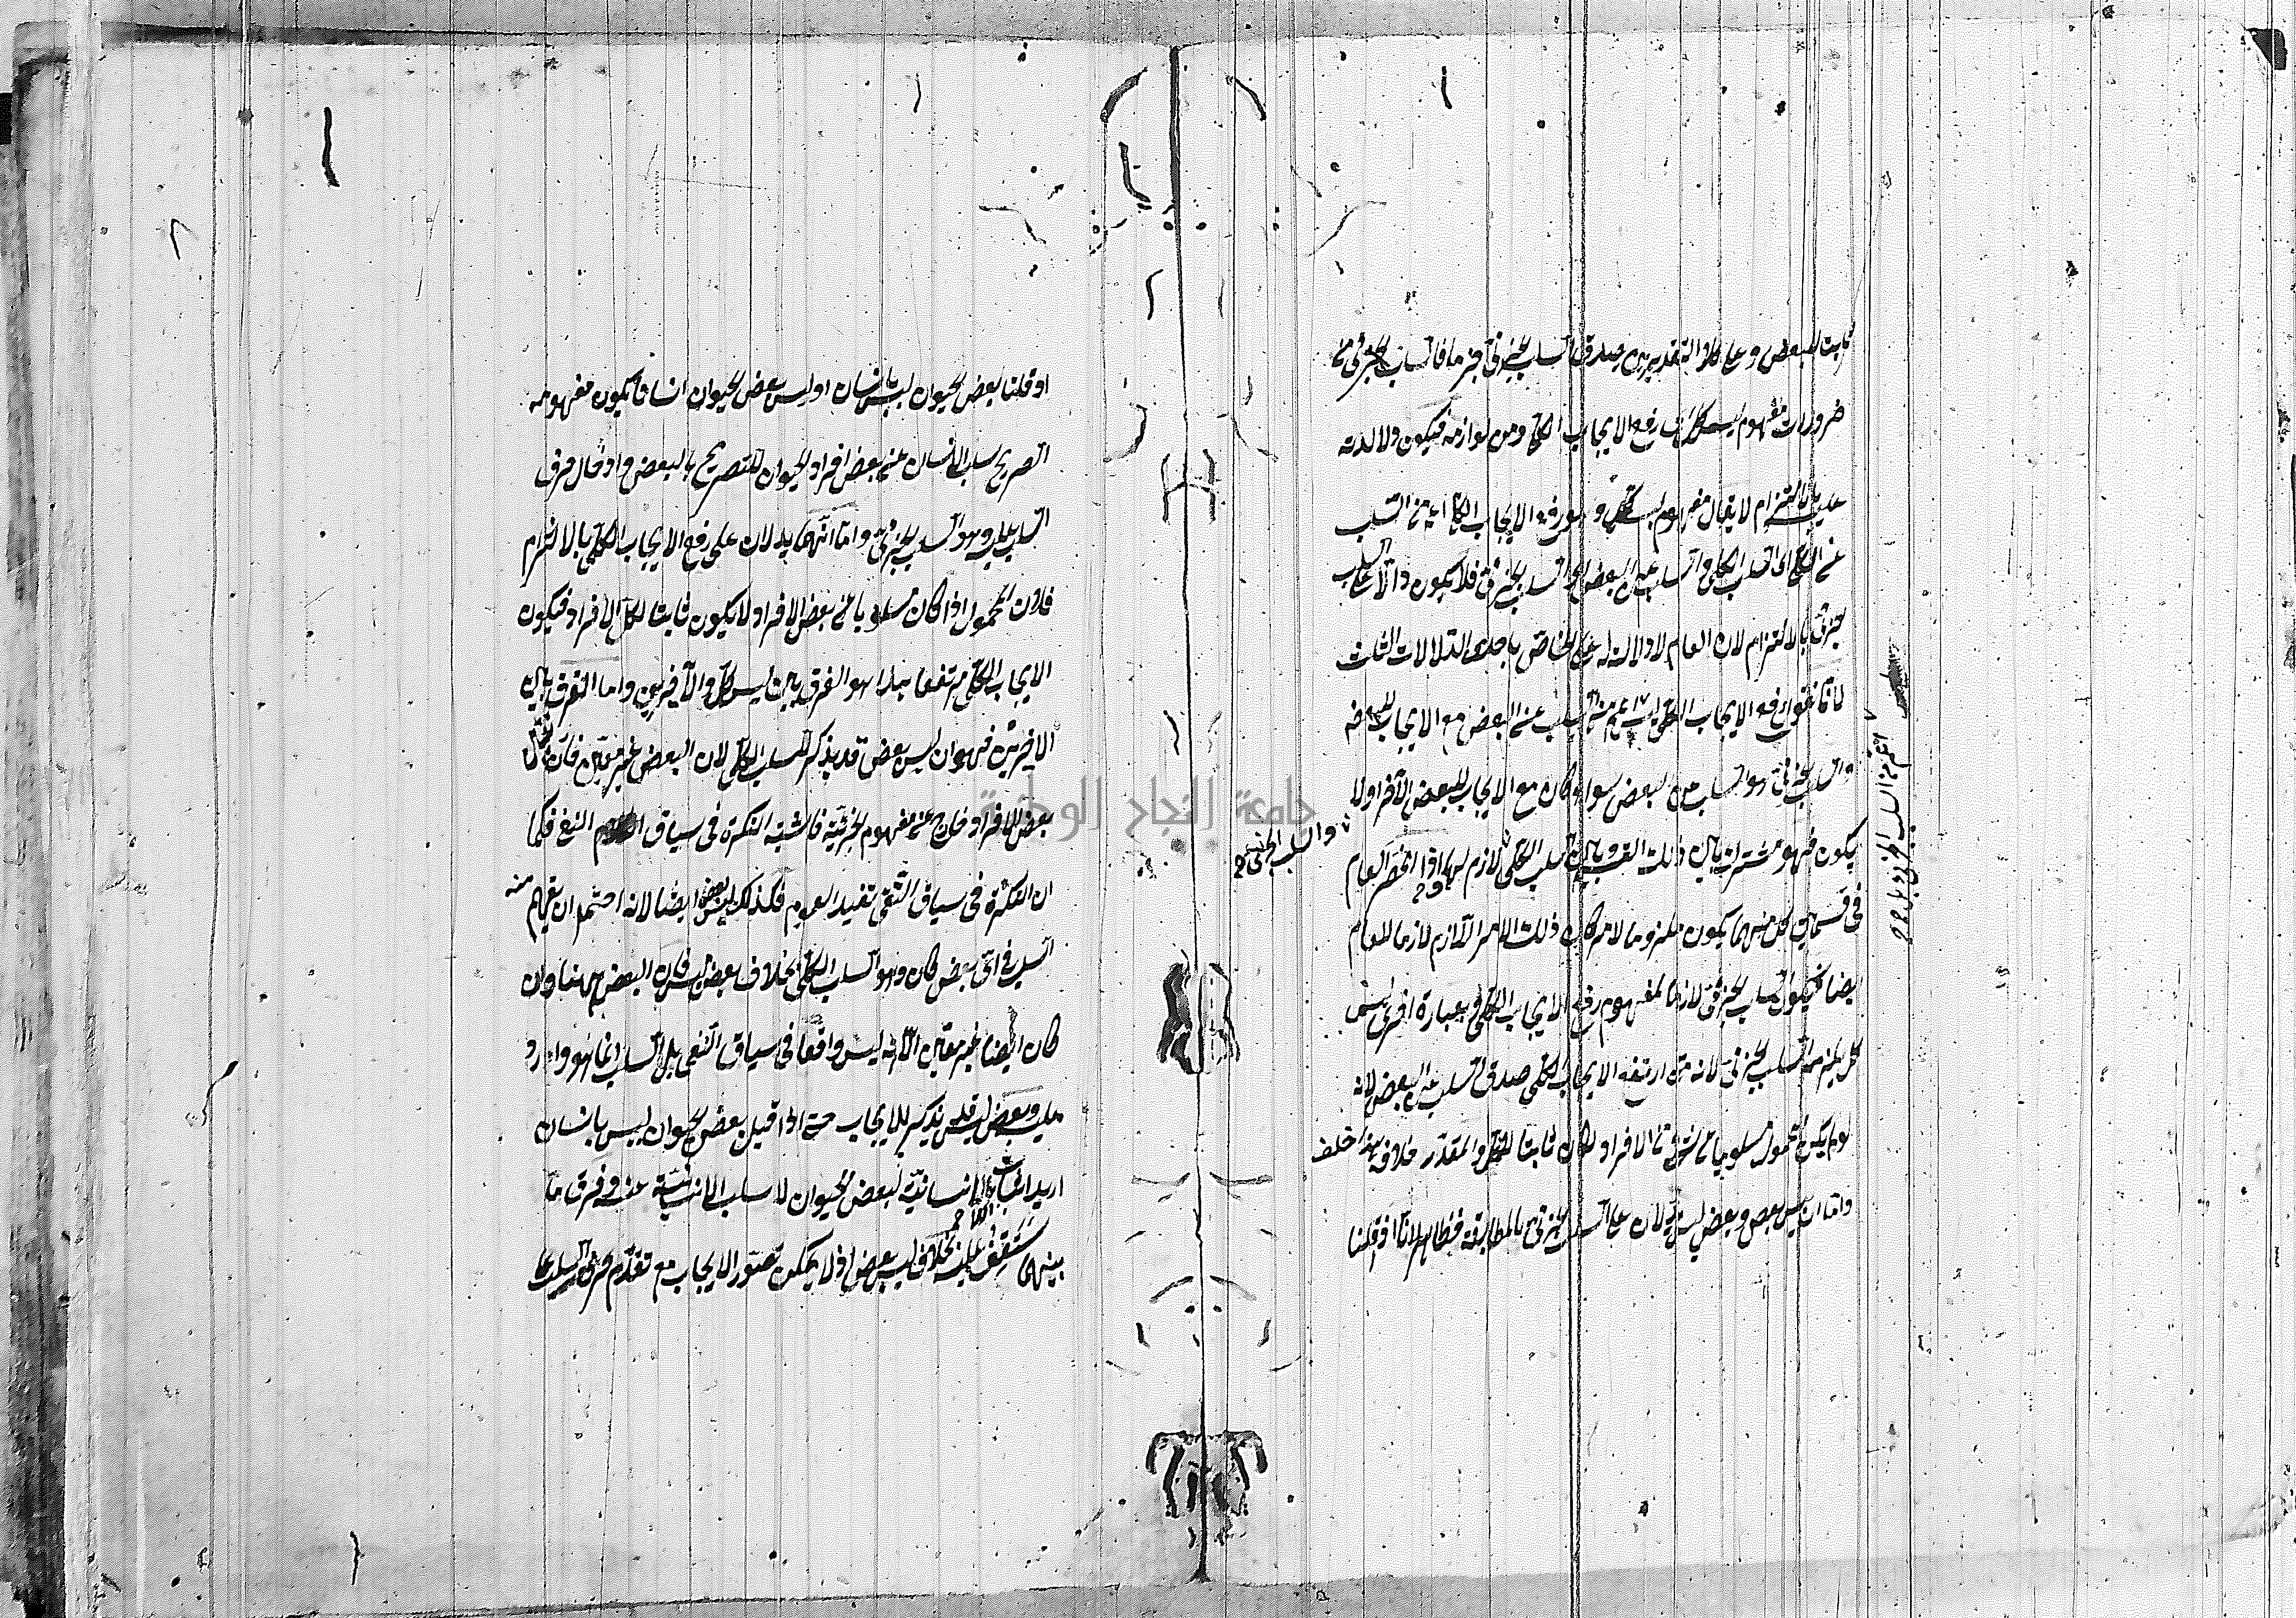 ثابت للبعض وعلى كلا التقديرين يصدق السلب الجزئي جزما فالسلب الجزئي من
ضرورات مفهوم ليس كل اي رفع الايجاب الكلي ومن لوازمه فيكون دلالته
عليه بالالتزام لا يقال مفهوم ليس كل وهو رفع الايجاب الكلي اعم من السلب
عن الكل اي السلب الكلي والسلب عن البعض اي السلب الجزئي فلا يكون دالا على السلب
الجزئي بالالتزام لان العام لا دلالة له على الخاص باحدى الدلالات الثلث
لانا نقول رفع الايجاب الكلي اعم من السلب عن البعض مع الايجاب للبعض
والسلب الجزئي هو السلب عن البعض سواء كان مع الايجاب للبعض الآخر او لا
يكون فهو مشترك بين ذلك القسم وبين السلب الكلي لازم لهما واذا انحصر العام
في قسمين كل منهما يكون ملزوما لامر كان ذلك الامر اللازم لازما للعام
ايضا فيكون السلب الجزئي لازما لمفهوم رفع الايجاب الكلي وبعبارة اخرى ليس
كل يلزمه السلب الجزئي لانه متى ارتفع الايجاب الكلي صدق السلب عن البعض لانه
لو لم يكن المحمول مسلوبا عن شئ من الافراد لكان ثابتا للكل والمقدر خلافه هذا خلف
واما ان ليس بعض وبعض ليس يدلان على السلب الجزئي بالمطابقة فظاهر لانا اذا قلنا
والسلب الجزئي
اعم من السلب الجزئي
او قلنا بعض الحيوان ليس بانسان او ليس بعض الحيوان انسانا يكون مفهومه
الصريح سلب الانسان عن بعض افراد الحيوان للتصريح بالبعض وادخال حرف
السلب عليه وهو السلب الجزئي واما انهما يدلان على رفع الايجاب الكلي بالالتزام
فلان المحمول اذا كان مسلوبا عن بعض الافراد لا يكون ثابتا لكل الافراد فيكون
الايجاب الكلي مرتفعا هذا هو الفرق بين ليس كل والآخرين واما الفرق بين
الاخيرين فهو ان ليس بعض قد يذكر للسلب الكلي لان البعض غير معين فان تعيين
بعض الافراد خارج عن مفهوم الجزئية فاشبه النكرة في سياق النفي فكما
ان النكرة في سياق النفي تفيد العموم فكذلك البعض ايضا لانه احتمل ان يفهم منه
السلب في اي بعض كان وهو السلب الكلي بخلاف بعض ليس فان البعض ههنا وان
كان ايضا غير معين الا انه ليس واقعا في سياق النفي بل السلب انما هو وارد
عليه وبعض ليس قد يذكر للايجاب حتى اذا قيل بعض الحيوان ليس بانسان
اريد اثبات اللاانسانية لبعض الحيوان لا سلب الانسانية عنه وفرق ما
بينهما ستقف عليه بخلاف ليس بعض اذ لا يمكن تصور الايجاب مع تقدم حرف السلب على
جامعة النجاح الوطنية